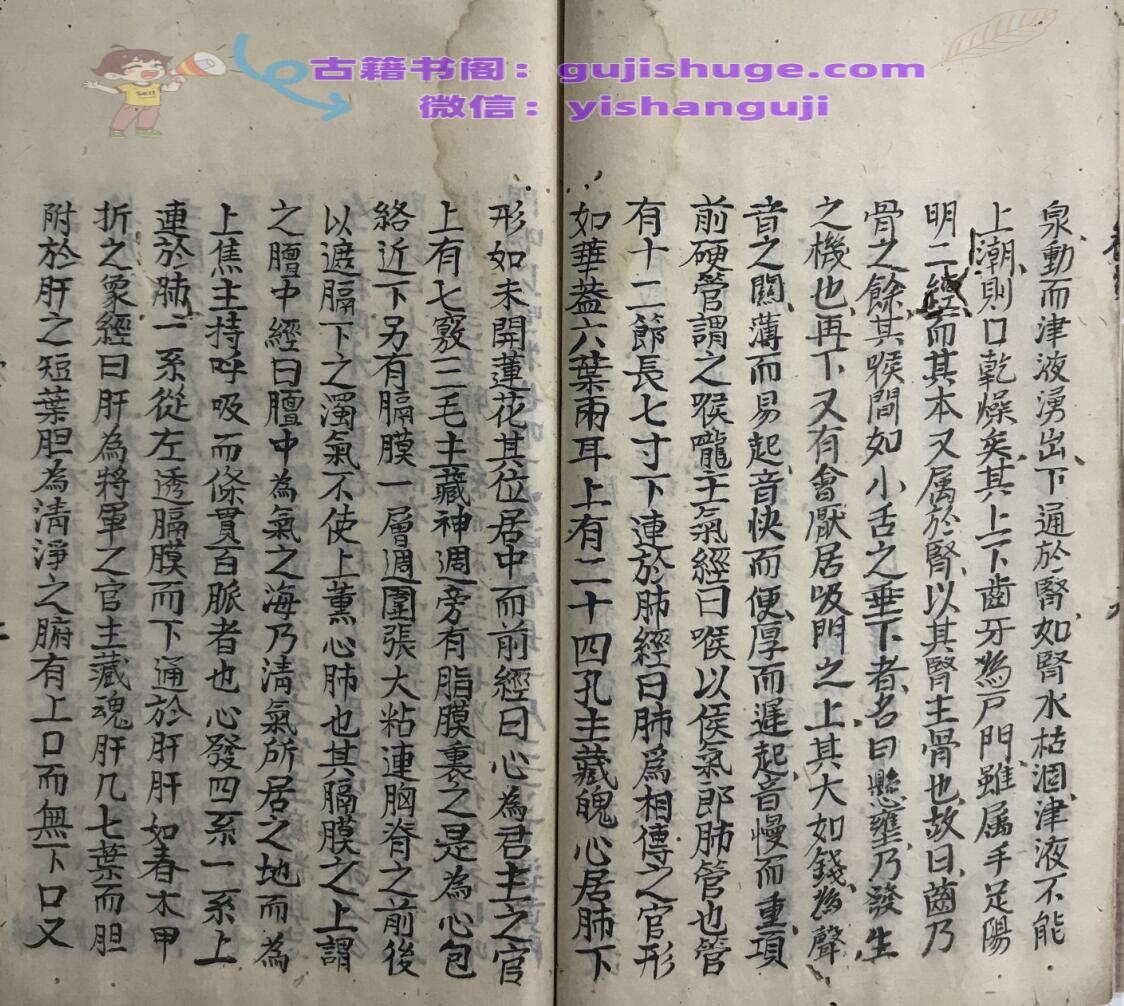 古籍书阁：gujishuge.com
微信：yishanguji
泉動而津液湧出下通於腎如腎水枯涸津液不能
上潮則口乾燥矣其上下齒牙為戶門雖属手足陽
明二經而其本又属於腎以其腎主骨也故曰齒乃
骨之餘其喉間如小舌之垂下者名曰懸壅乃發生
之機也再下又有會厭居吸門之上其大如錢為聲
音之關薄而易起音快而便厚而遲起音慢而重項
前硬管謂之喉嚨主氣經曰喉以侯氣郎肺管也管
有十二節長七寸下連於肺經曰肺爲相傳之官形
如華葢六葉兩耳上有二十四孔主藏魄心居肺下
形如未開蓮花其位居中而前經曰心為君主之官
上有七竅三毛主藏神週旁有脂膜裹之是為心包
絡近下另有膈膜一層週圍張大粘連胸脊之前後
以遮膈下之濁氣不使上薰心肺也其膈膜之上謂
之膻中經曰膻中為氣之海乃清氣所居之地而為
上焦主持呼吸而條貫百脈者也心發四系一系上
連於肺一系從左透膈膜而下通於肝肝如春木甲
折之象經曰肝為將軍之官主藏魂肝几七葉而胆
附於肝之短葉胆為清淨之腑有上口而無下口又